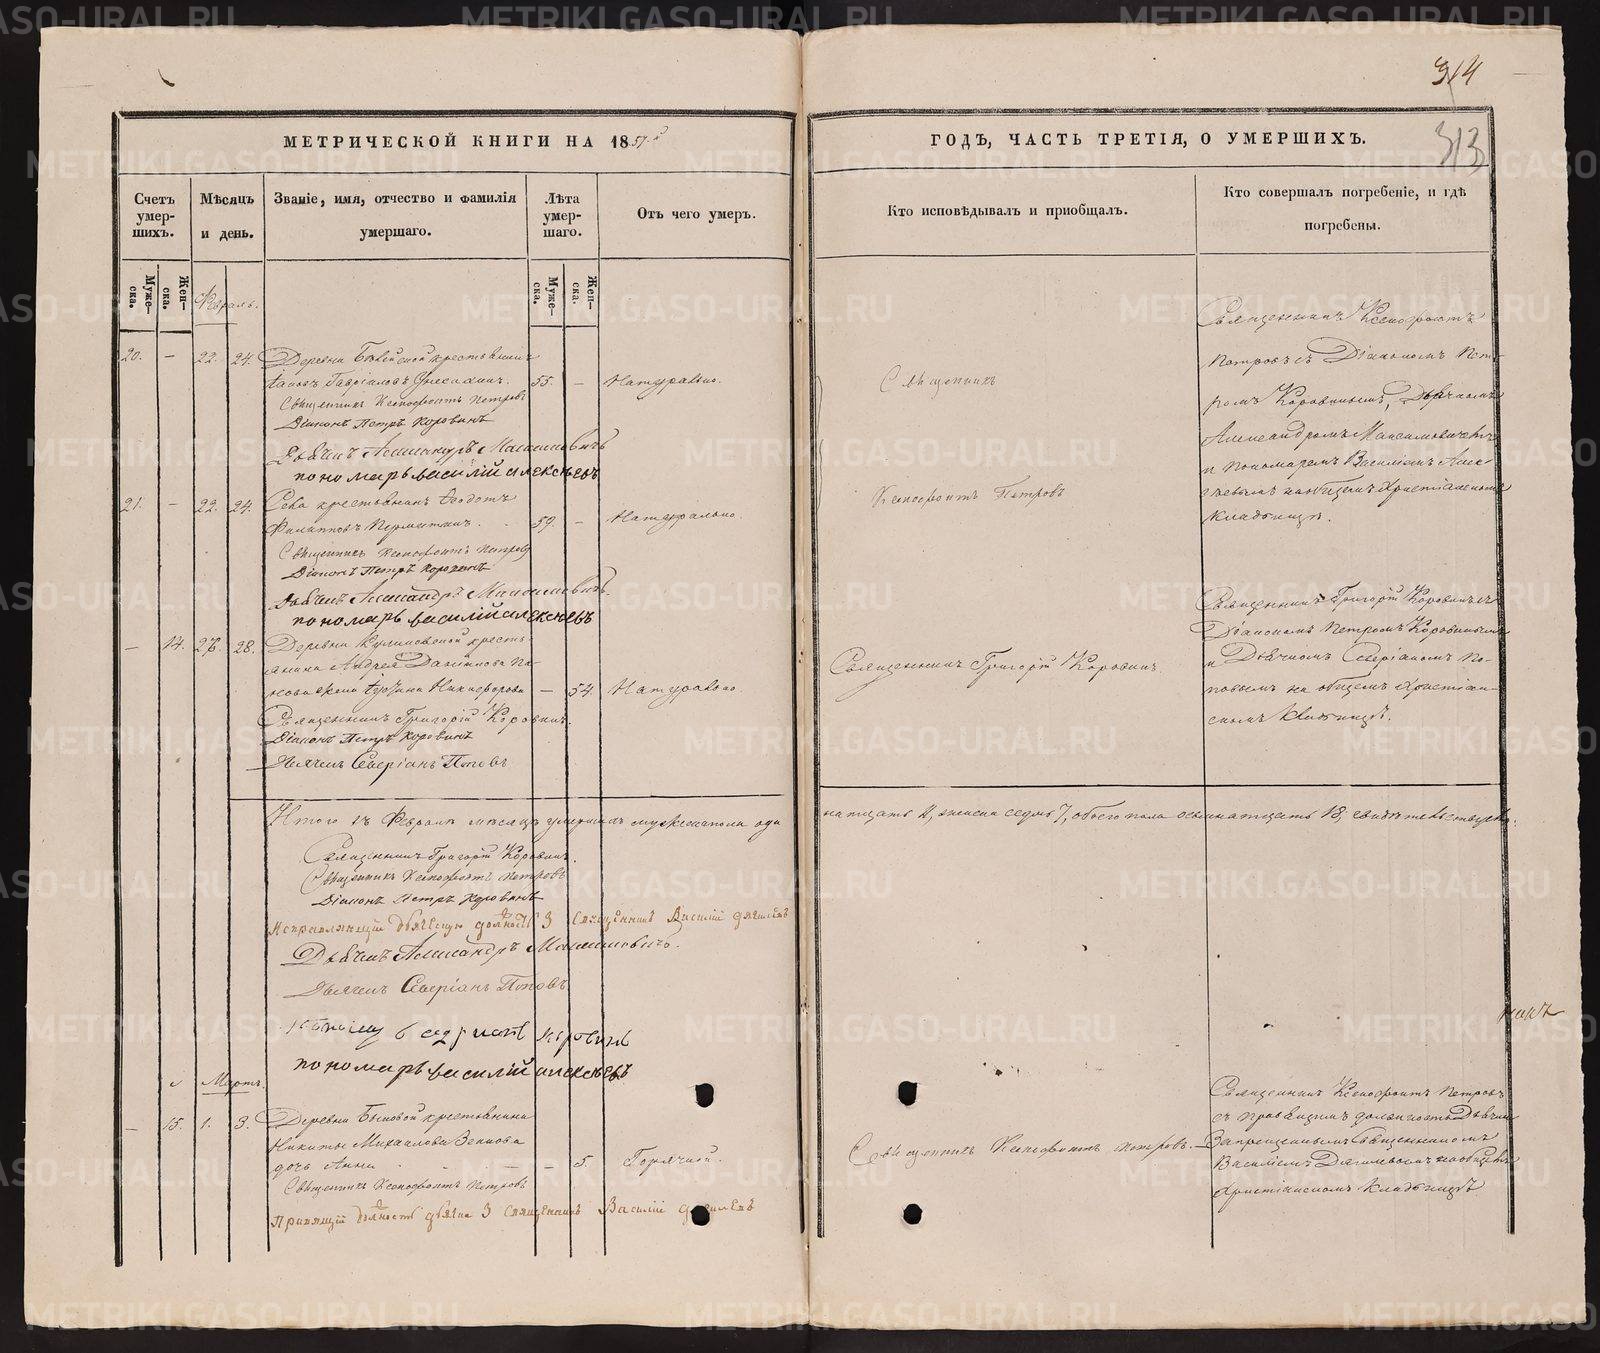 314
313
МЕТРИЧЕСКОЙ КНИГИ НА 1851й
ГОДЪ, ЧАСТЬ ТРЕТІЯ, О УМЕРШИХЪ.
Счетъ умер- шихъ.
Муже- ска.
Жен- ска.
Мѣсяцъ и день.
Званіе, имя, отчество и фамилія умершаго.
Лѣта умер- шаго.
Муже- ска.
Жен- ска.
Отъ чего умеръ.
Кто исповѣдывалъ и приобщалъ.
Кто совершалъ погребеніе, и гдѣ погребены.
Февраль.
20. — 22. 24. Деревни крестьянинъ
Гавріиловъ 55. — Натурально.
Священникъ Ксенофонтъ Петровъ
Діаконъ Петръ Коровинъ
Дьячекъ Александръ Максимовичъ
пономарь василій алексѣевъ
Священникъ
Ксенофонтъ Петровъ
Священникъ Ксенофонтъ
Петровъ съ Діакономъ Пет-
ромъ Коровинымъ, Дьячкомъ
Александромъ Максимовичемъ
и Пономаремъ Василіемъ Алек-
сѣевымъ на общемъ Христіанскомъ
Кладбищѣ.
21. — 22. 24. Села крестьянинъ Ѳеодотъ
Филипповъ 59. — Натурально.
Священникъ Ксенофонтъ Петровъ
Діаконъ Петръ Коровинъ
Дьячекъ Александръ Максимовичъ
пономарь василій алексѣевъ
— 14. 26. 28. Деревни крестья-
нина Андрея Данилова По-
жена Никифорова — 54. Натурально.
Священникъ Григорій Коровинъ.
Діаконъ Петръ Коровинъ
Дьячекъ Северіанъ Поповъ
Священникъ Григорій Коровинъ
Священникъ Григорій Коровинъ съ
Діакономъ Петромъ Коровинымъ
и Дьячкомъ Северіаномъ По-
повымъ на общемъ Христіан-
скомъ Кладбищѣ.
Итого въ Февралѣ мѣсяцѣ умершихъ мужеска пола оди
натцать 11, женска седмь 7, обоего пола осьмнатцать 18, свидѣтельствуемъ:
Священникъ Григорій Коровинъ.
Священникъ Ксенофонтъ Петровъ
Діаконъ Петръ Коровинъ
Исправляющій дьяческую должность З Священникъ Василій
Дьячекъ Александръ Максимовичъ.
Дьячекъ Северіанъ Поповъ
пономарь василій алексѣевъ
Мартъ.
— 15. 1. 3. Деревни Быковой крестьянина
Никиты Михайлова
дочь Анна — 5. Горячкой.
Священникъ Ксенофонтъ Петровъ
Правящій должность дьячка З Священникъ Василій
Священникъ Ксенофонтъ Петровъ.
Священникъ Ксенофонтъ Петровъ
съ правящимъ должность Дьячка
Запрещеннымъ Священникомъ
Василіемъ на общемъ
Христіанскомъ Кладбищѣ
METRIKI.GASO-URAL.RU